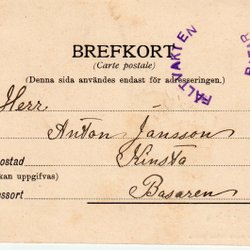 BREFKORT
(Carte postale)
(Denna sida användes endast för adresseringen.)
FÄLTVAKTEN
Herr
Anton Jansson
ostad Kinsta
kan uppgifvas)
essort Basaren